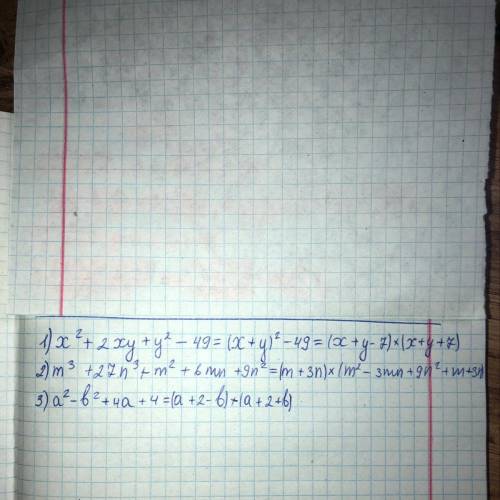 1) x² + 2xy + y² - 49 = (x+y)² - 49 = (x+y-7)×(x+y+7)
2) m³ + 27n³ + m² + 6mn + 9n² = (m+3n)×(m² - 3mn + 9n² + m+3n)
3) a² - b² + 4a + 4 = (a+2-b)×(a+2+b)